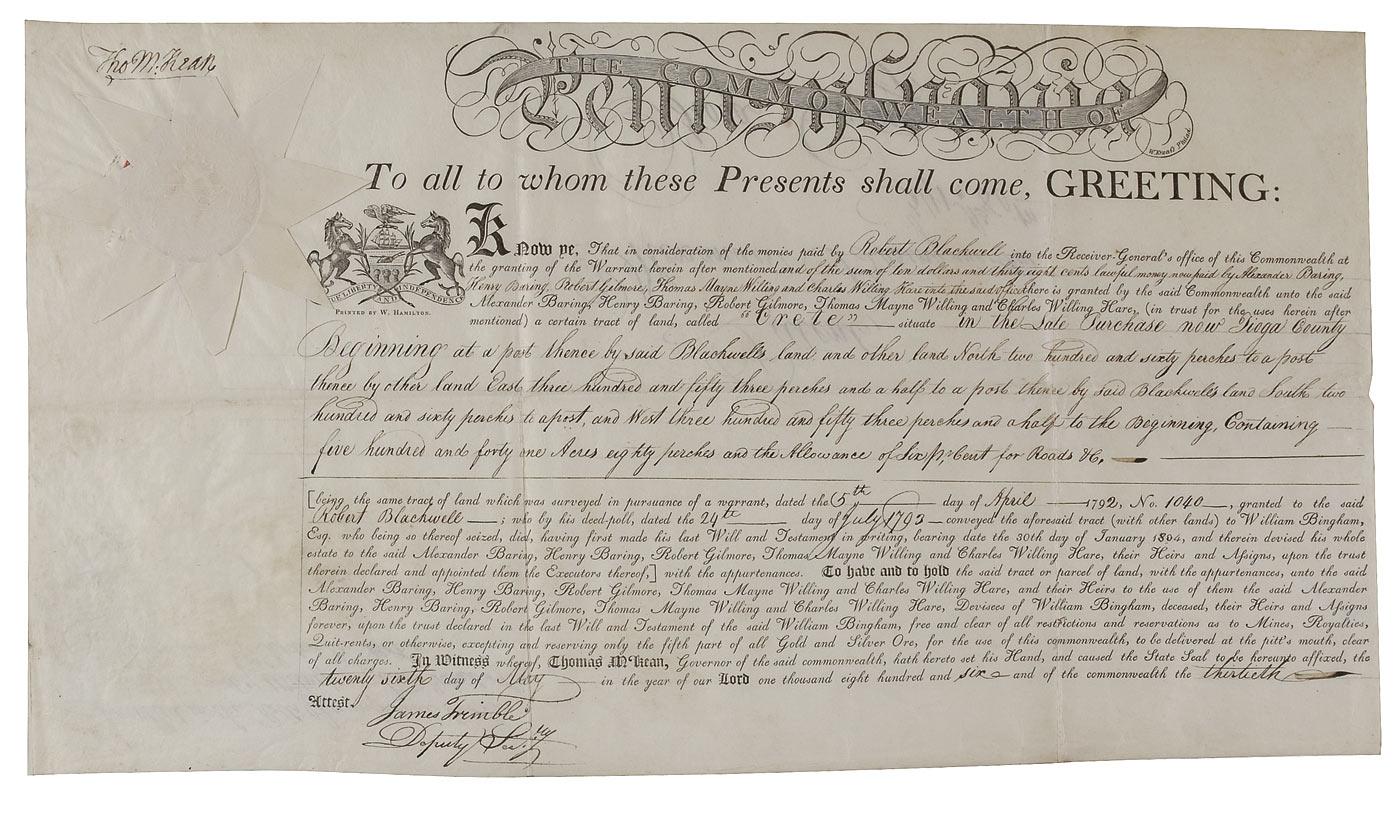 Tho M:Kean
THE COMMONWEALTH OF
Pennsylvania
To all to whom these Presents shall come, GREETING:
Know ye, That in consideration of the monies paid by Robert Blackwell into the Receiver-General's office of this Commonwealth at
the granting of the Warrant herein after mentioned and of the sum of ten dollars and thirty eight cents lawful money now paid by Alexander Baring,
Henry Baring, Robert Gilmore, Thomas Mayne Willing and Charles Willing Hare into the said office there is granted by the said Commonwealth unto the said
Alexander Baring, Henry Baring, Robert Gilmore, Thomas Mayne Willing and Charles Willing Hare, (in trust for the uses herein after
mentioned) a certain tract of land, called "Crete" situate in the Late Purchase now Tioga County
LIBERTY AND INDEPENDENCE
PRINTED BY W. HAMILTON.
Beginning at a post thence by said Blackwells land and other land North two hundred and sixty perches to a post
thence by other land East three hundred and fifty three perches and a half to a post thence by said Blackwells land South two
hundred and sixty perches to a post, and West three hundred and fifty three perches and a half to the Beginning, Containing
five hundred and forty one Acres eighty perches and the Allowance of Six p. Cent for Roads &c.
[being the same tract of land which was surveyed in pursuance of a warrant, dated the 5th day of April 1792, No. 1040, granted to the said
Robert Blackwell; who by his deed-poll, dated the 24th day of July 1793 conveyed the aforesaid tract (with other lands) to William Bingham,
Esq. who being so thereof seized, died, having first made his last Will and Testament in writing, bearing date the 30th day of January 1804, and therein devised his whole
estate to the said Alexander Baring, Henry Baring, Robert Gilmore, Thomas Mayne Willing and Charles Willing Hare, their Heirs and Assigns, upon the trust
therein declared and appointed them the Executors thereof,] with the appurtenances. To have and to hold the said tract or parcel of land, with the appurtenances, unto the said
Alexander Baring, Henry Baring, Robert Gilmore, Thomas Mayne Willing and Charles Willing Hare, and their Heirs to the use of them the said Alexander
Baring, Henry Baring, Robert Gilmore, Thomas Mayne Willing and Charles Willing Hare, Devisees of William Bingham, deceased, their Heirs and Assigns
forever, upon the trust declared in the last Will and Testament of the said William Bingham, free and clear of all restrictions and reservations as to Mines, Royalties,
Quit-rents, or otherwise, excepting and reserving only the fifth part of all Gold and Silver Ore, for the use of this commonwealth, to be delivered at the pitt's mouth, clear
of all charges. In Witness whereof, Thomas M'Kean, Governor of the said commonwealth, hath hereto set his Hand, and caused the State Seal to be hereunto affixed, the
twenty sixth day of May in the year of our Lord one thousand eight hundred and six and of the commonwealth the thirtieth
Attest.
James Trimble
Deputy Secty